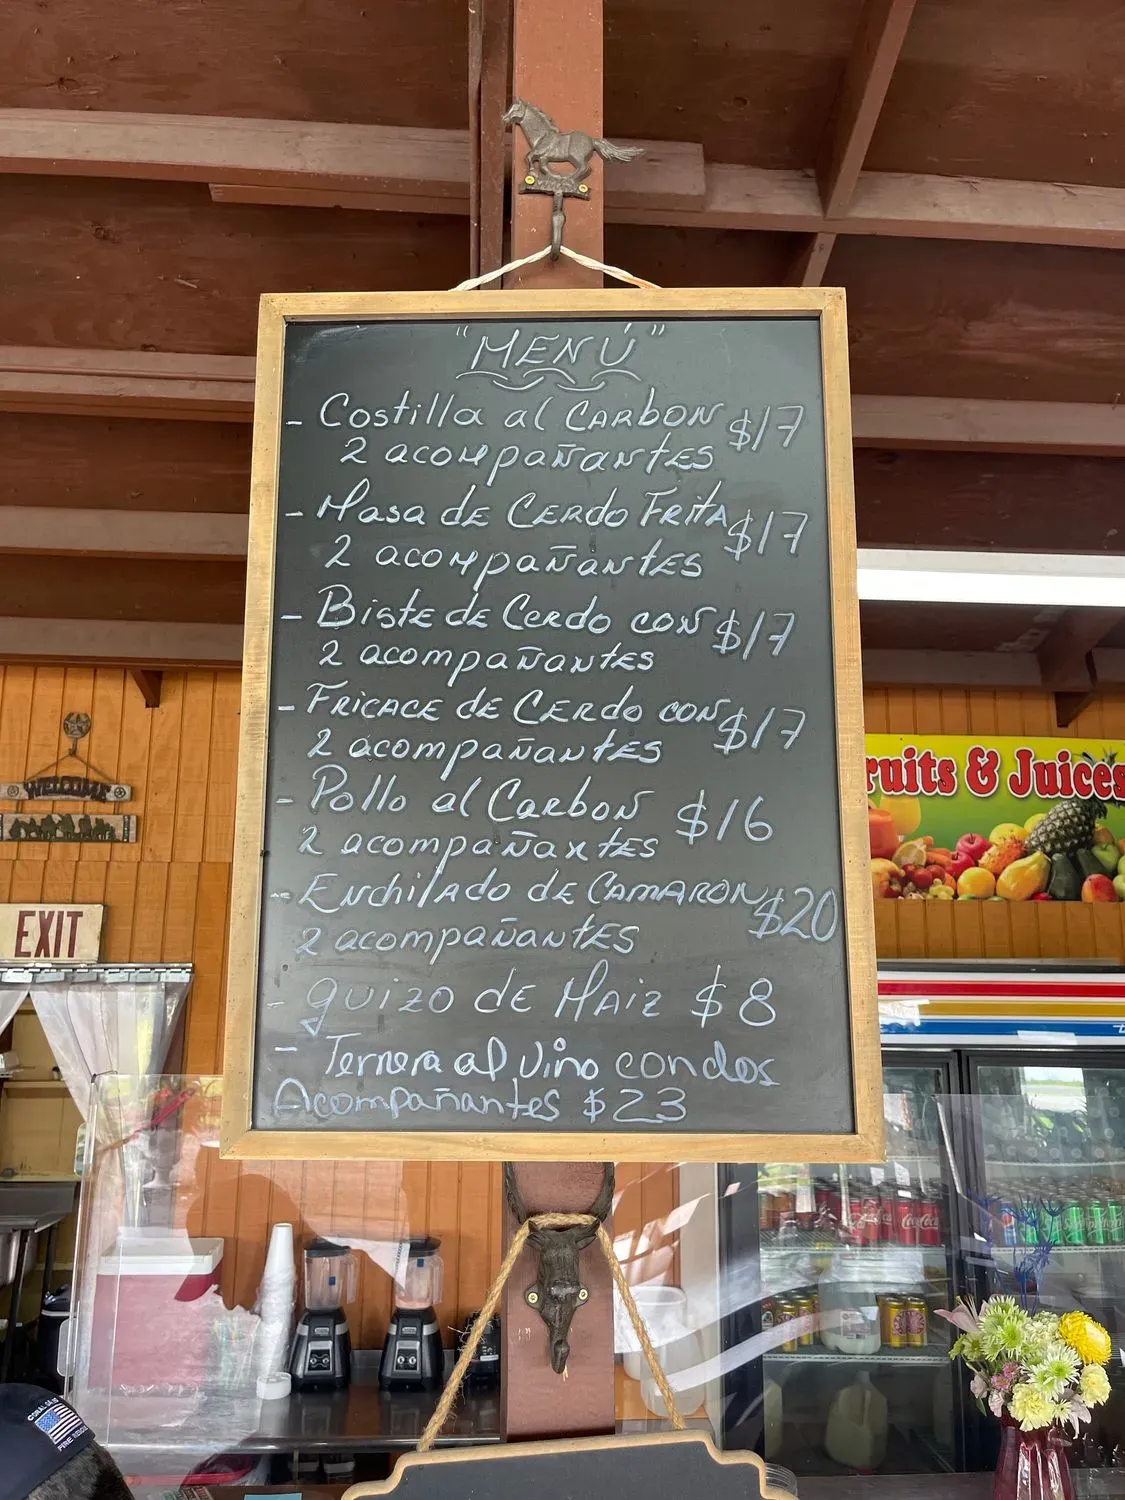 "MENÚ"
- Costilla al CARbON $17
2 acompañantES
- Masa dE CERdo FRitA $17
2 acompañantES
- BistE dE CERdo coN $17
2 acompañantES
- FRICACE dE CERdo coN $17
2 acompañantES
- Pollo al CarboN $16
2 acompañantES
- Enchilado dE CAMARON $20
2 acompañantES
- guizo dE MAiz $8
- Ternera al vino con dos
Acompañantes $23
WELCOME
EXIT
ruits & Juices
Coca-Cola